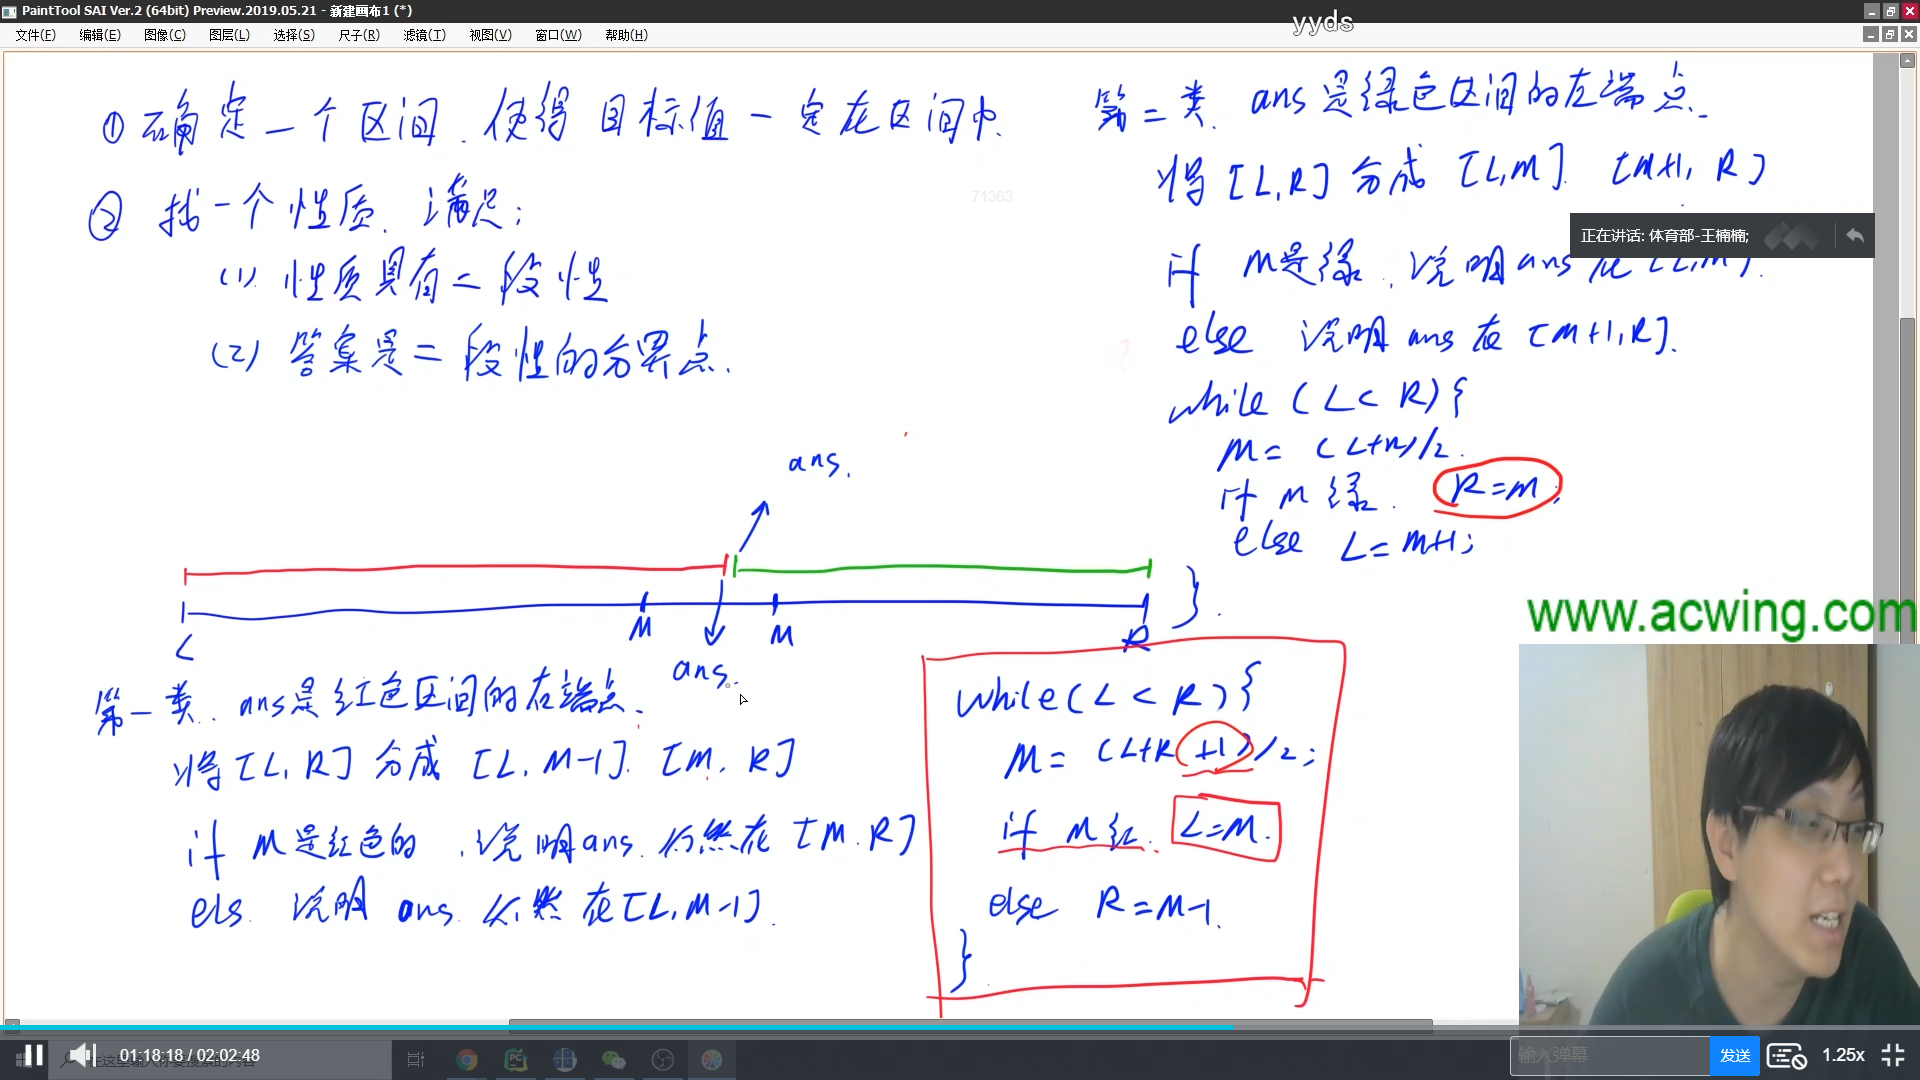 PaintTool SAI Ver.2 (64bit) Preview.2019.05.21 - 新建画布1 (*)
yyds
文件(F) 编辑(E) 图像(C) 图层(L) 选择(S) 尺子(R) 滤镜(T) 视图(V) 窗口(W) 帮助(H)
① 确定一个区间.使得 目标值一定在区间中.
② 找一个性质.满足:
(1) 性质具有二段性
(2) 答案是二段性的分界点.
71363
ans.
L
M
M
R
ans.
第一类. ans是红色区间的右端点.
将[L,R] 分成 [L, M-1]. [M, R]
if M是红色的,说明ans.仍然在 [M.R]
els. 说明 ans.仍然在[L,M-1].
第二类. ans是绿色区间的左端点.
将[L,R] 分成 [L,M]. [M+1, R]
正在讲话: 体育部-王楠楠;
if M是绿.说明ans在[L,M].
else 说明 ans 在 [M+1,R].
while (L<R){
M= (L+R)/2.
if M绿. R=M;
else L=M+1;
}.
www.acwing.com
while(L<R){
M= (L+R+1)/2;
if M红. L=M.
else R=M-1.
}
01:18:18 / 02:02:48
输入弹幕
发送
1.25x